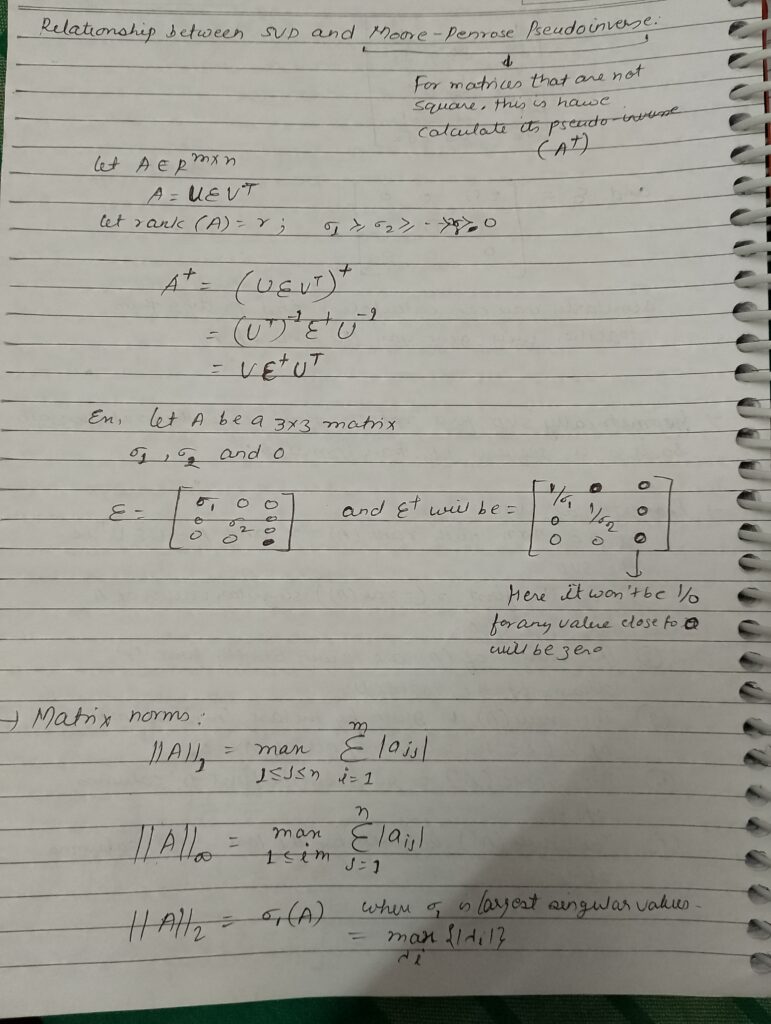 Relationship between SVD and Moore-Penrose Pseudoinverse:
↓
For matrices that are not
square, this is hawe
calculate its pseudo-inverse
(A⁺)
let A ∈ R^{m×n}
A = UΣVᵀ
let rank (A) = r ; σ₁ ≥ σ₂ ≥ 0
A⁺ = (UΣVᵀ)⁺
= (Vᵀ)⁻¹ Σ⁺ U⁻¹
= VΣ⁺Uᵀ
Ex, let A be a 3x3 matrix
σ₁, σ₂ and 0
Σ = [σ₁ 0 0 and Σ⁺ will be = [1/σ₁ 0 0
0 σ₂ 0 0 1/σ₂ 0
0 0 0] 0 0 0]
↓
Here it won't be 1/0
for any value close to 0
will be zero
→ Matrix norms:
||A||₁ = max_{1≤j≤n} Σ_{i=1}^{m} |aᵢⱼ|
||A||∞ = max_{1≤i m} Σ_{j=1}^{n} |aᵢⱼ|
||A||₂ = σ₁(A) where σ₁ is largest singular values.
= max_{λi} {|λᵢ|}